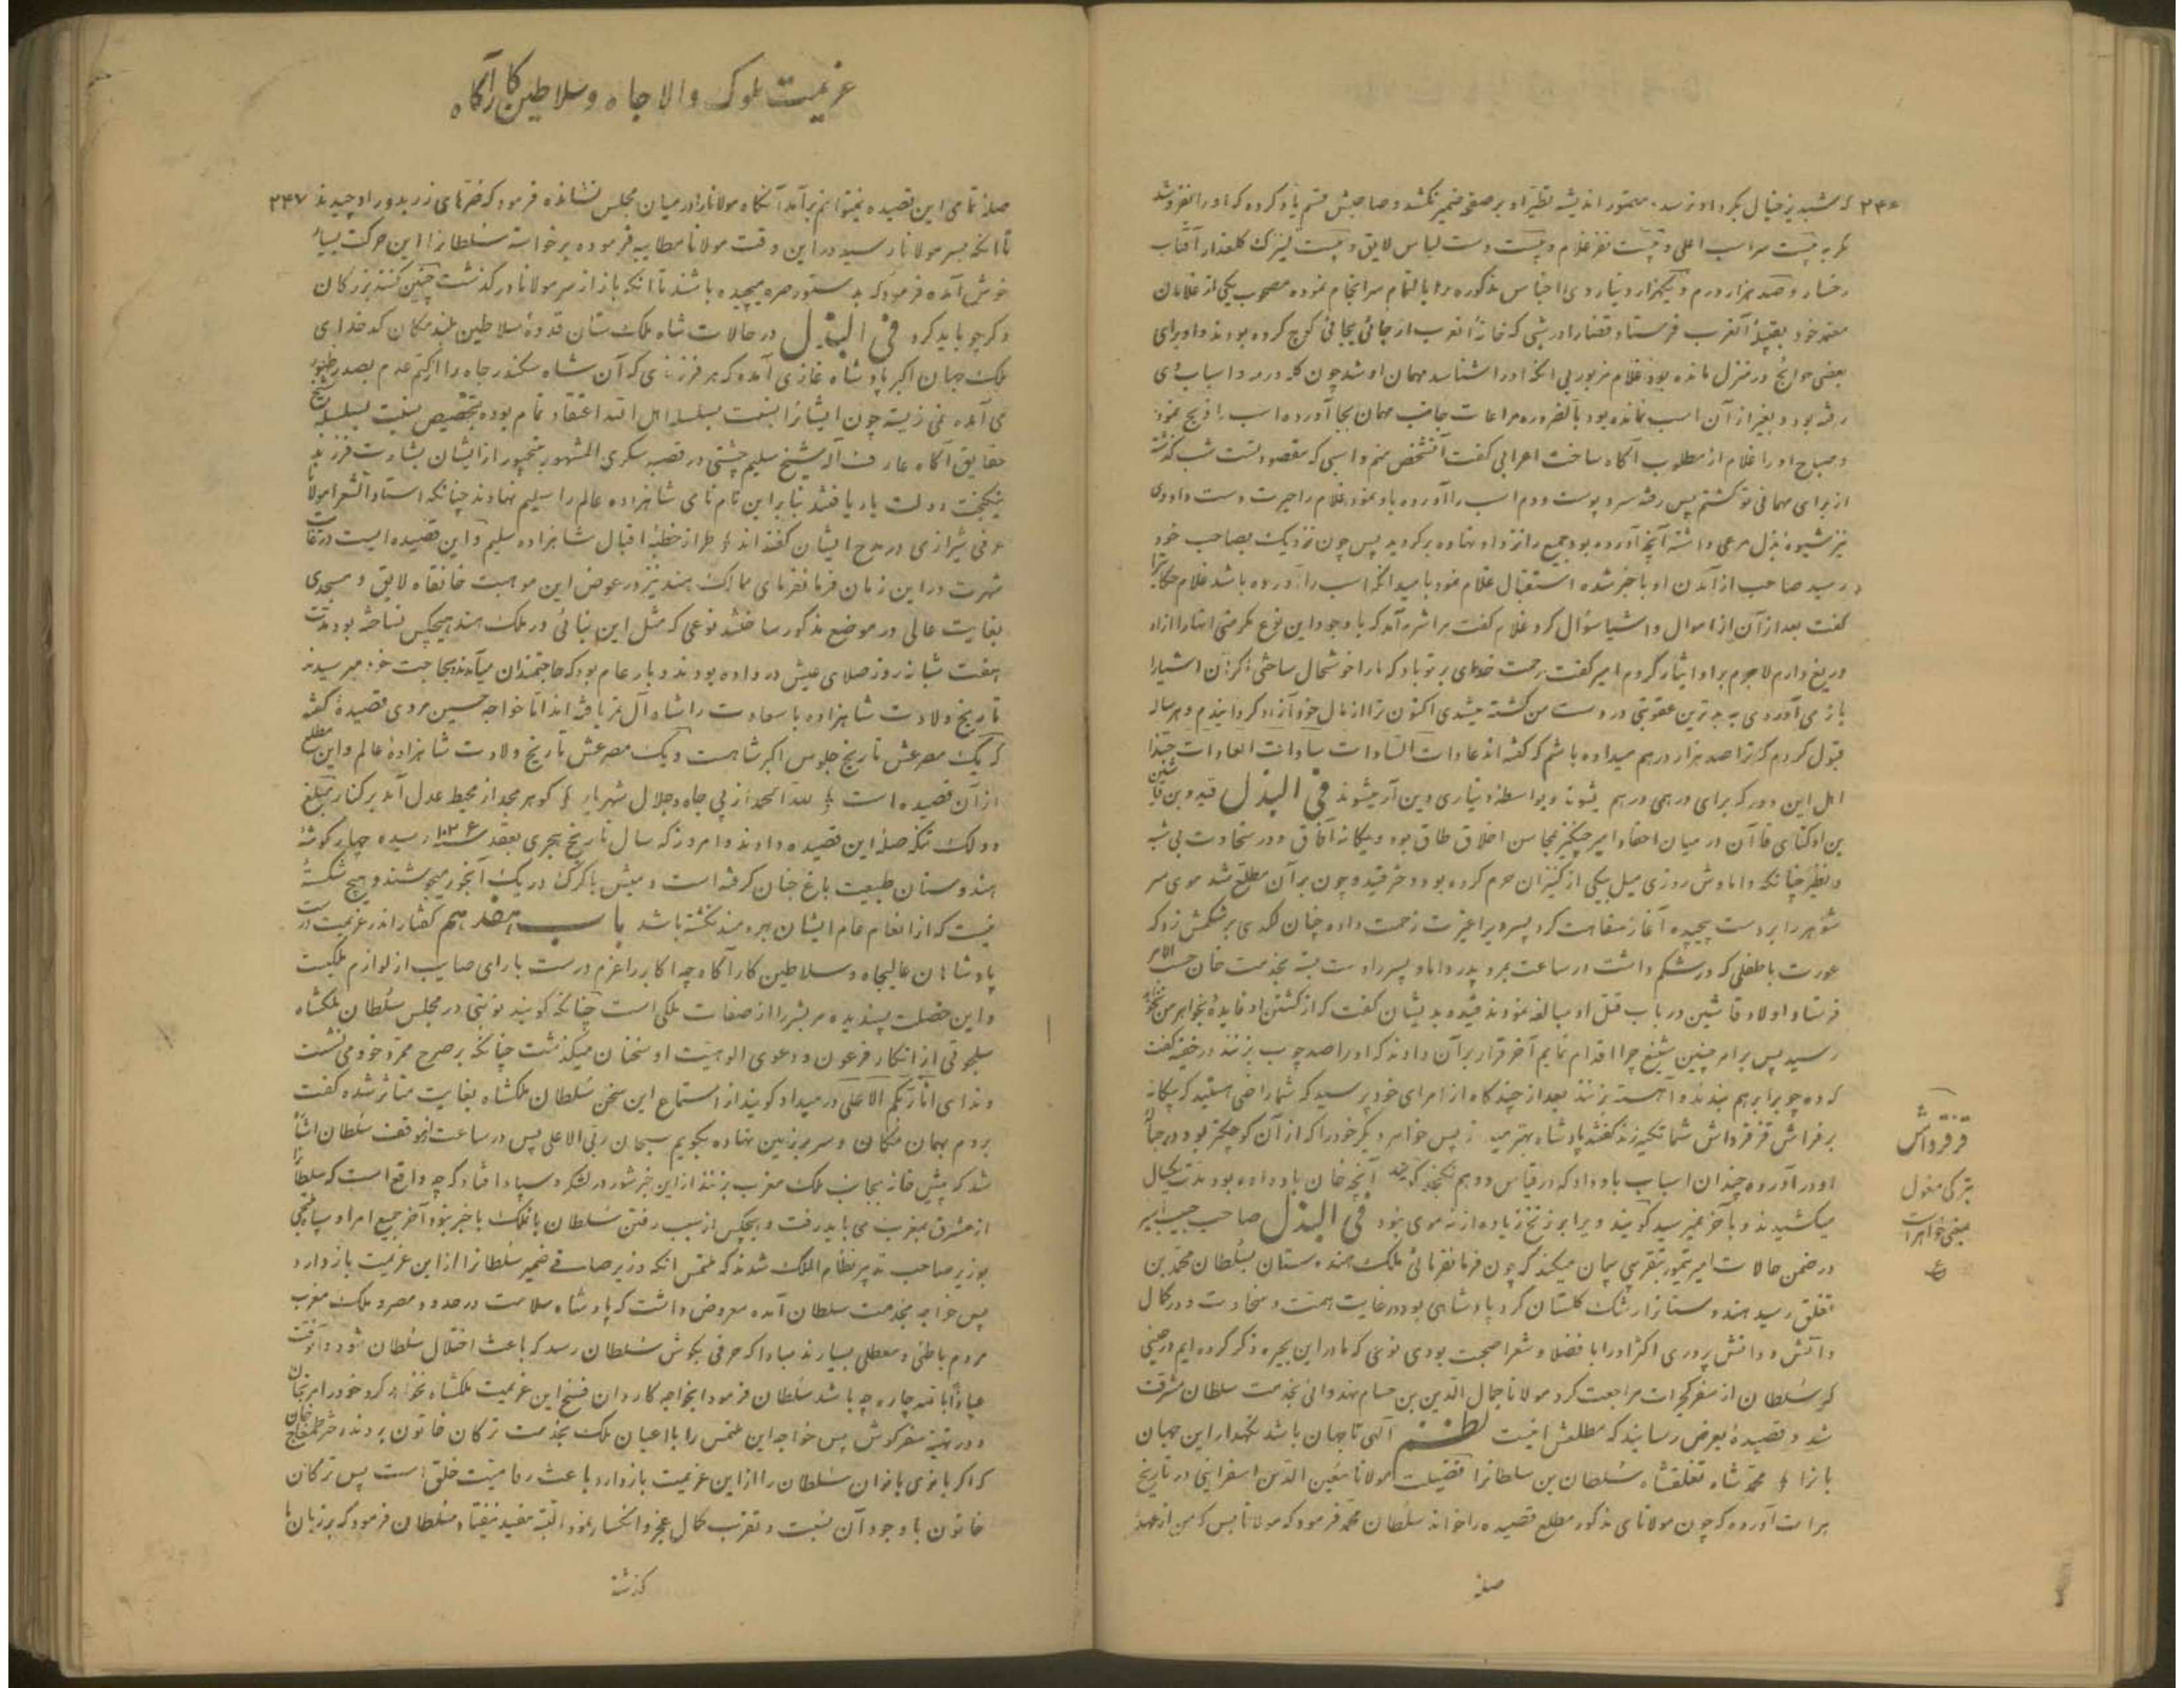 ۲۴۶ که شبدیز خیال بکرد او نرسد مصور اندیشه نظیر او بر صفحه ضمیر نکشد و صاحبش قسم یاد کرده که او را نفروشد
مگر به بیست سر اسب اعلی و بیست نفر غلام و بیست دست لباس لایق و بیست کنیزک گلعذار آفتاب
رخسار و صد هزار درم و یکهزار دینار وی اجناس مذکوره را بالتمام سرانجام نموده مصحوب یکی از غلامان
معتمد خود بقبیله آنعرب فرستاد قضا را در شبی که خانه آنعرب از جائی بجائی کوچ کرده بودند و او برای
بعضی حوایج در منزل مانده بود غلام مزبور بی آنکه او را شناسد مهمان او شد چون کله و رمه و اسباب وی
رفته بود و بغیر از آن اسب نمانده بود بالضروره مراعات جانب مهمان بجا آورده اسب را ذبح نمود
و صباح او را غلام از مطلوب آگاه ساخت اعرابی گفت آنشخص منم و اسبی که مقصود تست شب گذشته
از برای مهمانی تو کشتم پس رفته سر و پوست و دم اسب را آورده باو نمود غلام را حیرت دست داد وی
نیز شیوه بذل مرعی داشته آنچه آورده بود جمیع را نزد او نهاده برگردید پس چون نزدیک بصاحب خود
رسید صاحب از آمدن او با خبر شده استقبال غلام نمود بامید آنکه اسب را آورده باشد غلام حکایت را
گفت بعد از آن از اموال و اشیا سؤال کرد غلام گفت مرا شرم آمد که با وجود این نوع مکرمتی اینها را از او
دریغ دارم لاجرم بر او ایثار کردم امیر گفت رحمت خدای بر تو باد که ما را خوشحال ساختی اگر آن اشیا را
باز می آوردی به بدترین عقوبتی در دست من کشته میشدی اکنون ترا از مال خود آزاد گردانیدم و هر ساله
قبول کردم که ترا صد هزار درهم میداده باشم که گفته اند عادات السادات سادات العادات حبذا
اهل این دور که برای درهمی درهم میشوند و بواسطه دیناری دین آر میشوند فی البذل قیدو بن قاشین
بن اوکتای قاآن در میان احفاد امیر چنگیز بمحاسن اخلاق طاق بود و یگانه آفاق و در سخاوت بی شبه
و نظیر چنانکه دامادش روزی میل بیکی از کنیزان حرم کرده بود دختر قیدو چون بر آن مطلع شد موی سر
شوهر را بر دست پیچیده آغاز سفاهت کرد پسر ویرا غیرت زحمت داده چنان لگدی بر شکمش زد که
عورت با طفلی که در شکم داشت در ساعت بمرد پدر داماد پسر را دست بسته بخدمت خان حسب الامر
فرستاد اولاد قاشین در باب قتل او مبالغه نمودند قیدو بدیشان گفت که از کشتن او فایده بخواهر من نخواهد
رسید پس بر امر چنین شنیع چرا اقدام نمایم آخر قرار بر آن دادند که او را صد چوب بزنند در خفیه گفت
که ده چوب را بر هم بندند و آهسته بزنند بعد از چندگاه از امرای خود پرسید که شما راضی هستید که بیگانه
بر فراش قزقرداش شما تکیه زند گفتند پادشاه بهتر میداند پس خواهر دیگر خود را که از آن کوچکتر بود در حباله
او در آورده چندان اسباب باو داد که در قیاس و وهم نگنجد گویند آنچه خان باو داده بود مدت یکسال
میکشیدند و بآخر نمیرسید گویند ویرا بر زنخ زیاده از نه موی نبود فی البذل صاحب حبیب السیر
در ضمن حالات امیر تیمور بتقریبی بیان میکند که چون فرمانفرمائی ملک هندوستان بسلطان محمد بن
تغلق رسید هندوستان را رشک گلستان کرد پادشاهی بود در غایت همت و سخاوت و در کمال
دانش و دانش پروری اکثر او را با فضلا و شعرا صحبت بودی نوعی که ما در این بحیره ذکر کرده ایم در حینی
که سلطان از سفر گجرات مراجعت کرد مولانا جمال الدین بن حسام هندوانی بخدمت سلطان مشرف
شد و قصیده بعرض رسانید که مطلعش اینست نظم الهی تا جهان باشد نگهدار این جهان
بانرا محمد شاه تغلقشاه سلطان بن سلطانرا فضیلت مولانا معین الدین اسفراینی در تاریخ
برامت آورده که چون مولانای مذکور مطلع قصیده را خواند سلطان محمد فرمود که مولانا بس که من از عهده
صله
قزقرداش
بترکی مغول
بمعنی خواهر است
عزیمت ملوک والا جاه و سلاطین کار آگاه
صله تمامی این قصیده نمیتوانم بر آمد آنگاه مولانا را در میان مجلس نشانده فرمود که صرّهای زر بدور او چیدند ۲۴۷
تا آنکه بسر مولانا رسید در این وقت مولانا مطایبه فرموده برخواست سلطانرا این حرکت بسیار
خوش آمده فرمود که بدستور صره میچیده باشند تا آنکه باز از سر مولانا در گذشت چنین کنند بزرگان
و کرچو باید کرد فی البذل در حالات شاه ملک ستان قدوة سلاطین بلند مکان کدخدای
ملک جهان اکبر پادشاه غازی آمده که هر فرزندی که آن شاه سکندر جاه را از کتم عدم بصدر ظهور
می آمد نمی زیست چون ایشانرا نسبت بسلسله اهل الله اعتقاد تمام بوده بتخصیص نسبت بسلسله شیخ
حقایق آگاه عارف اله شیخ سلیم چشتی در قصبه سکری المشهور بفتحپور از ایشان بشارت فرزند
نیکبخت دولت یار یافتند بنابر این نام نامی شاهزاده عالم را سلیم نهادند چنانکه استاد الشعرا مولانا
عرفی شیرازی در مدح ایشان گفته اند طراز خطبه اقبال شاهزاده سلیم و این قصیده ایست در غایت
شهرت در این زمان فرمانفرمای ممالک هند نیز در عوض این موهبت خانقاه لایق و مسجدی
بغایت عالی در موضع مذکور ساختند نوعی که مثل این بنائی در ملک هند هیچکس نساخته بود مدت
هفت شبانه روز صلای عیش در داده بودند و بار عام بود که حاجتمندان میآمدند بحاجت خود میرسیدند
تاریخ ولادت شاهزاده با سعادت را شاه آل تمر یافته اند اما خواجه حسین مروی قصیده گفته
که یک مصرعش تاریخ جلوس اکبر شاهست و یک مصرعش تاریخ ولادت شاهزاده عالم و این مطلع
از آن قصیده است لله الحمد از پی جاه و جلال شهریار گوهر مجد از محیط عدل آمد بر کنار مبلغ
دو لک تنکه صله این قصیده دادند و امروز که سال تاریخ هجری بعقد ۱۰۳۶ رسیده چهار گوشه
هندوستان طبیعت باغ جنان گرفته است و میش با گرگ در یک آبخور میجوشند و هیچ شکسته
نیست که از انعام عام ایشان بهره مند نگشته باشد باب هفدهم گفتار اندر عزیمت درست
پادشاهان عالیجاه و سلاطین کار آگاه چه اکابر را عزم درست با رای صایب از لوازم ملکیت
و این خصلت پسندیده مر بشر را از صفات ملکی است چنانکه گویند نوبتی در مجلس سلطان ملکشاه
سلجوقی از انکار فرعون و دعوی الوهیت او سخنان میگذشت چنانکه بر صرح ممرد خود می نشست
و ندای انا ربکم الاعلی در میداد گویند از استماع این سخن سلطان ملکشاه بغایت متأثر شده گفت
بروم بهمان مکان و سر بر زمین نهاده بگویم سبحان ربی الاعلی پس در ساعت از موقف سلطان اشارت
شد که پیش خانه بجانب ملک مغرب بزنند از این خبر شور در لشکر و سپاه افتاد که چه واقع است که سلطانرا
از مشرق بمغرب می باید رفت و هیچکس از سبب رفتن سلطان بآنملک با خبر نبود آخر جمیع امرا و سپاهی
بوزیر صاحب تدبیر نظام الملک شدند که ملتمس آنکه وزیر صافی ضمیر سلطانرا از این عزیمت باز دارد
پس خواجه بخدمت سلطان آمده معروض داشت که پادشاه سلامت در حدود مصر و ملک مغرب
مردم باطنی و معطلی بسیارند مبادا که حرفی بگوش سلطان رسد که باعث اختلال سلطان شود و آنوقت
عیاذاً بالله چاره چه باشد سلطان فرمود ایخواجه کاردان فسخ این عزیمت ملکشاه نخواهد کرد خود را مرنجان
و در تهیه سفر کوش پس خواجه این ملتمس را با اعیان ملک بخدمت ترکان خاتون بردند دختر طمغاج خان
که اگر بانوی بانوان سلطان را از این عزیمت باز دارد باعث رفاهیت خلق است پس ترکان
خاتون با وجود آن نسبت و تقرب کمال عجز و انکسار نمود البته مفید نیفتاد سلطان فرمود که بر زبان ما
گذشته